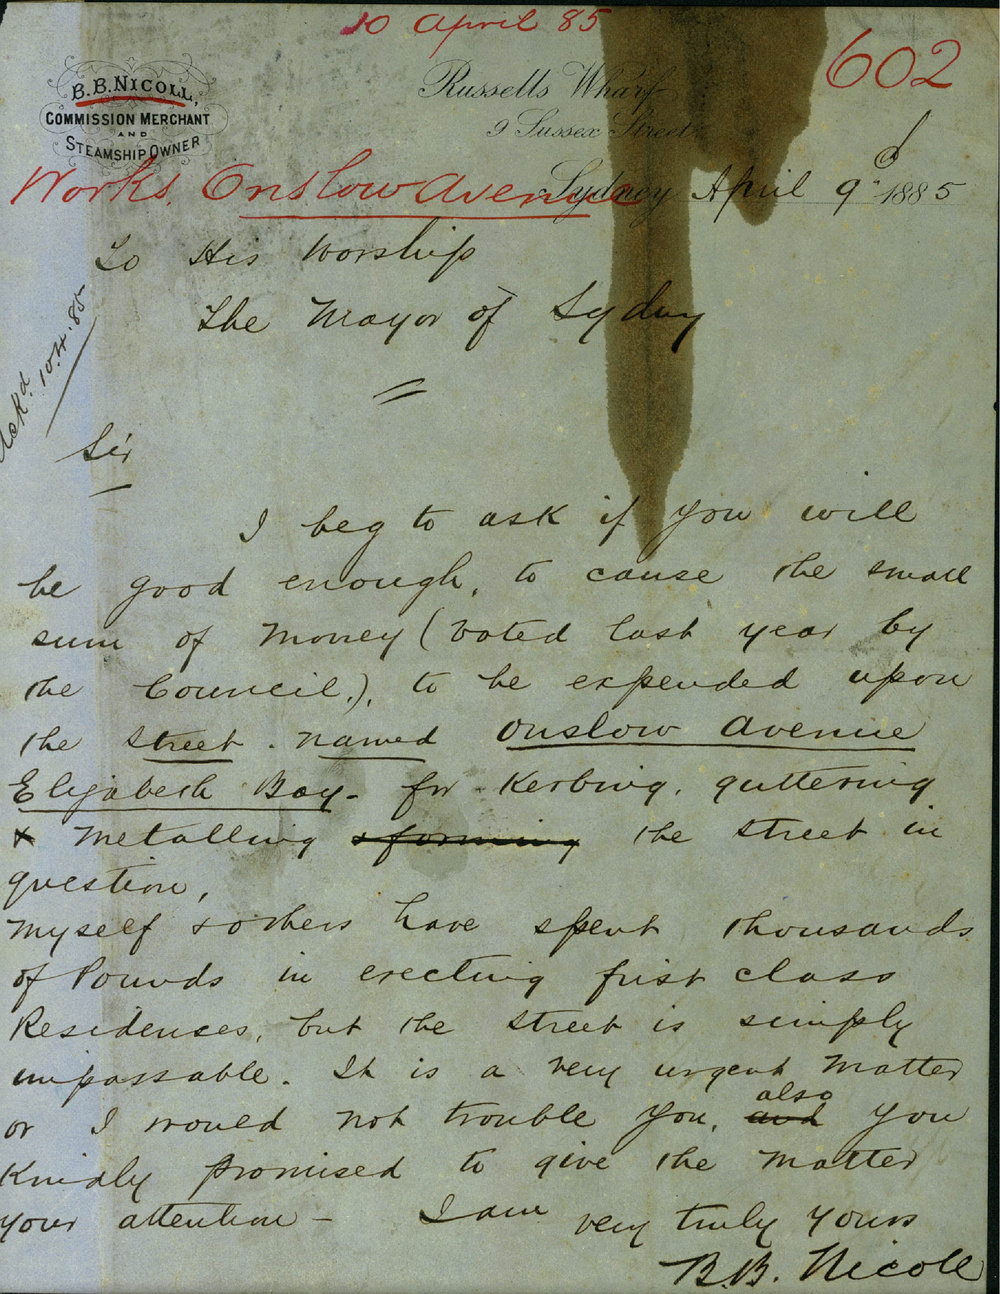 10 April 85
602
B.B. NICOLL,
COMMISSION MERCHANT
AND
STEAMSHIP OWNER
Russells Wharf
9 Sussex Street
Works. Onslow Avenue
Sydney April 9th 1885
Ackd. 10.4.85
To His Worship
The Mayor of Sydney
Sir
I beg to ask if you will
be good enough, to cause the small
sum of money (voted last year by
the Council.), to be expended upon
the street. named Onslow Avenue
Elizabeth Bay- for Kerbing, guttering
& Metalling & forming the street in
question,
Myself & others have spent thousands
of Pounds in erecting first class
Residences, but the street is simply
impassable. It is a very urgent Matter
also
or I would not trouble you, and you
Kindly promised to give the Matter
your attention - I am very truly Yours
B.B. Nicoll